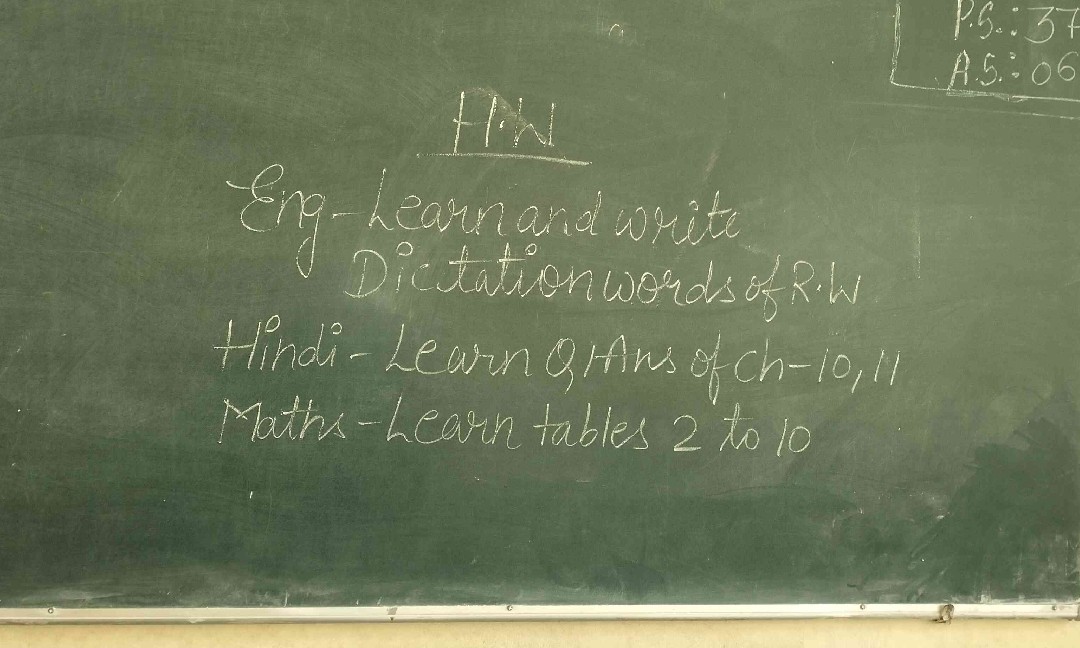 P.S.: 37
A.S.: 06
H.W
Eng - Learn and write
Dictation words of R.W
Hindi - Learn Q/Ans of ch-10, 11
Maths - Learn tables 2 to 10